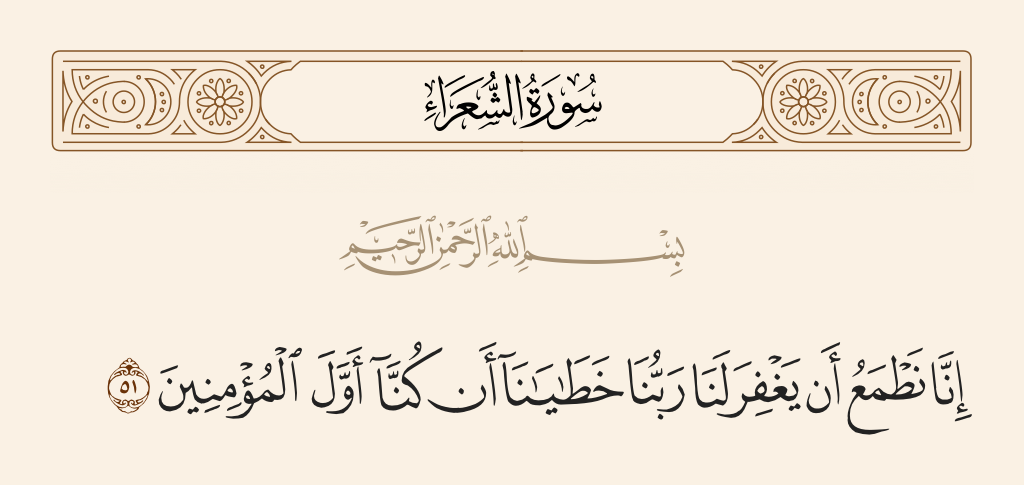 سُورَةُ الشُّعَرَاءِ
بِسْمِ ٱللَّهِ ٱلرَّحْمَٰنِ ٱلرَّحِيمِ
إِنَّا نَطْمَعُ أَن يَغْفِرَ لَنَا رَبُّنَا خَطَٰيَٰنَآ أَن كُنَّآ أَوَّلَ ٱلْمُؤْمِنِينَ ٥١